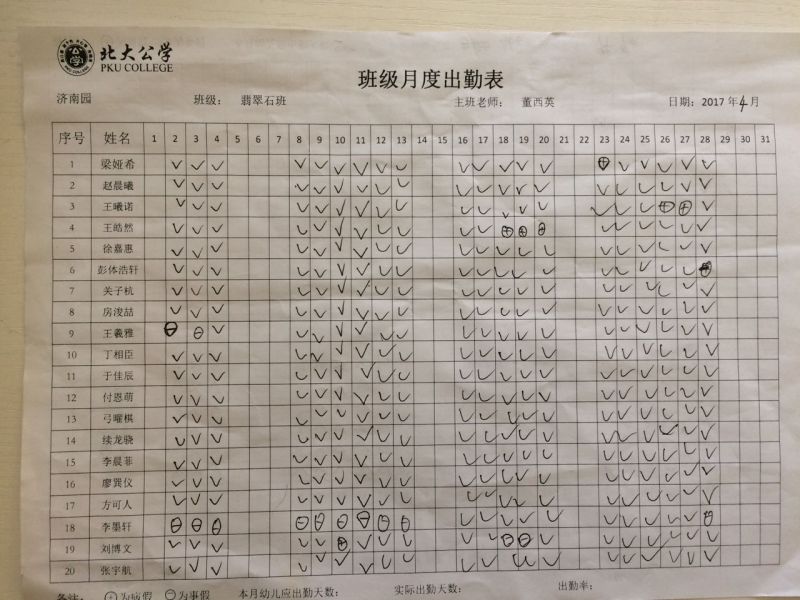 北大公学
PKU COLLEGE
班级月度出勤表
济南园 班级： 翡翠石班 主班老师： 董西英 日期：2017年4月
序号 姓名 1 2 3 4 5 6 7 8 9 10 11 12 13 14 15 16 17 18 19 20 21 22 23 24 25 26 27 28 29 30 31
1 梁娅希
2 赵晨曦
3 王曦诺
4 王皓然
5 徐嘉惠
6 彭体浩轩
7 关子杭
8 房浚喆
9 王羲雅
10 丁相臣
11 于佳辰
12 付恩萌
13 弓曜棋
14 续龙骁
15 李晨菲
16 廖巽仪
17 方可人
18 李墨轩
19 刘博文
20 张宇航
备注： ⊕为病假 ⊖为事假 本月幼儿应出勤天数： 实际出勤天数： 出勤率：